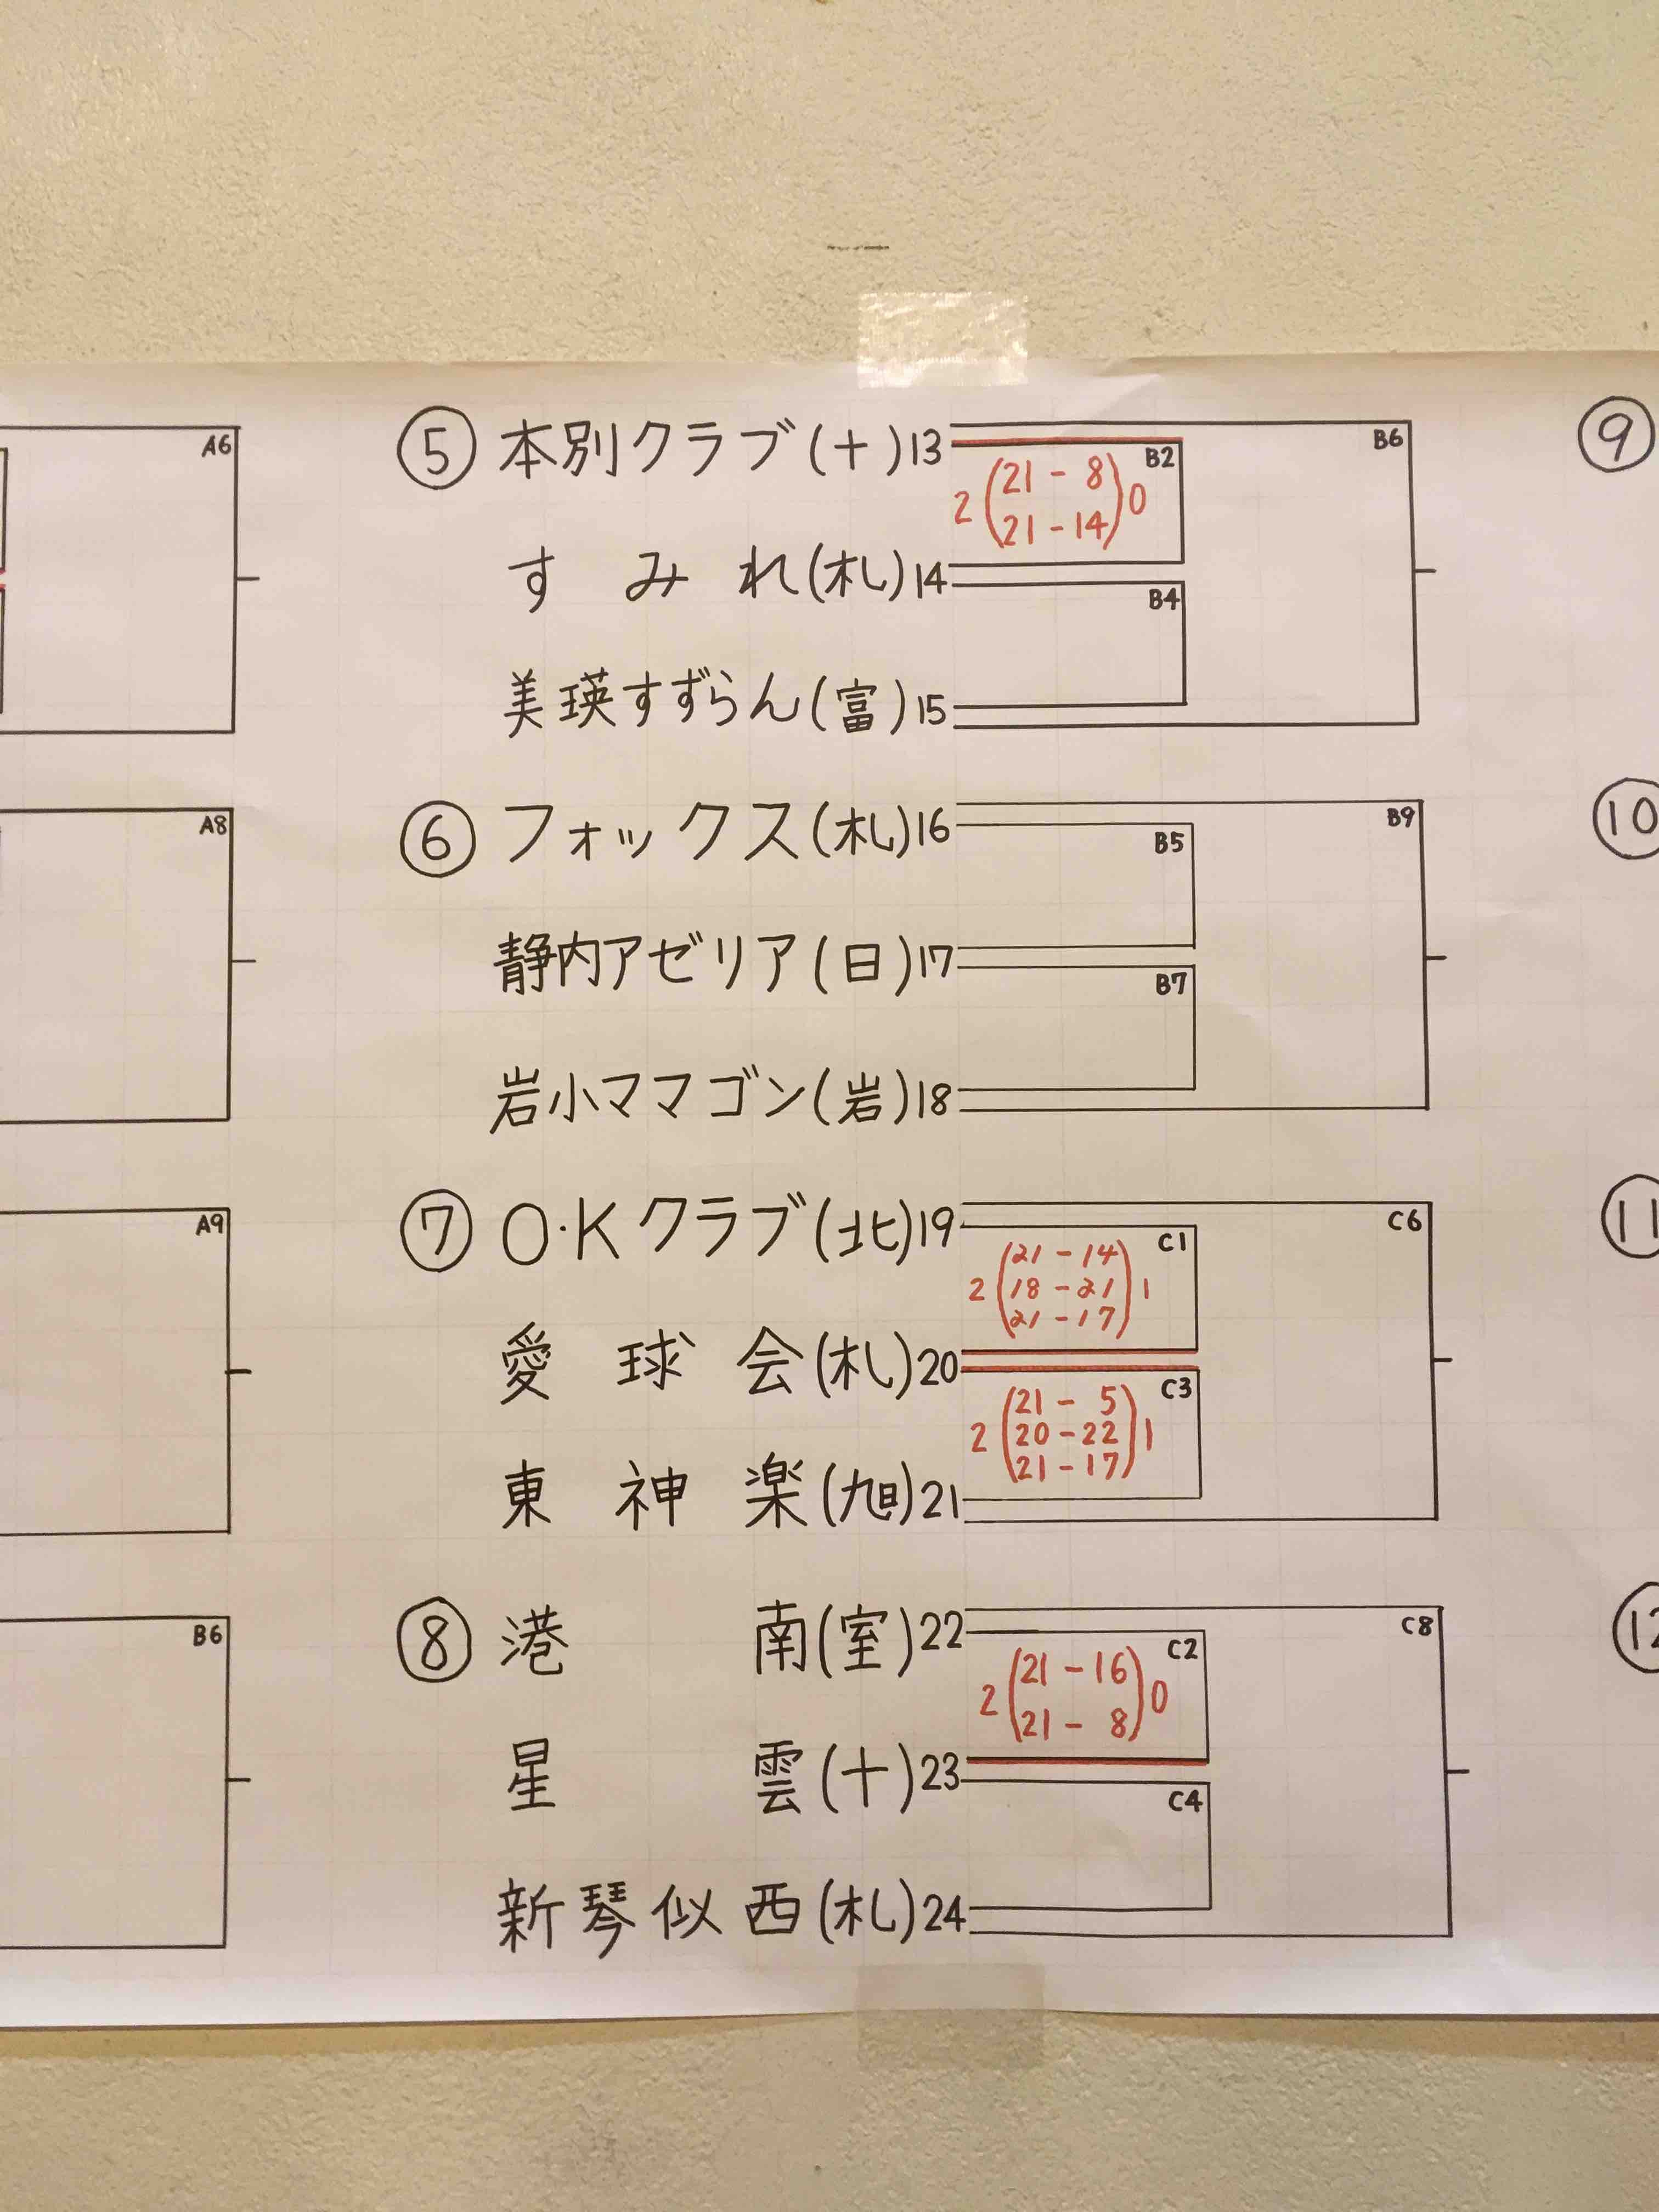 A6
A8
A9
B6
⑤ 本別クラブ(十)13
B2
B6
2(21-8
21-14)0
すみれ(札)14
B4
美瑛すずらん(富)15
⑥ フォックス(札)16
B5
B9
静内アゼリア(日)17
B7
岩小ママゴン(岩)18
⑦ O·Kクラブ(北)19
C1
C6
2(21-14
18-21
21-17)1
愛球会(札)20
C3
2(21-5
20-22
21-17)1
東神楽(旭)21
⑧ 港南(室)22
C2
C8
2(21-16
21-8)0
星雲(十)23
C4
新琴似西(札)24
⑨
⑩
⑪
⑫